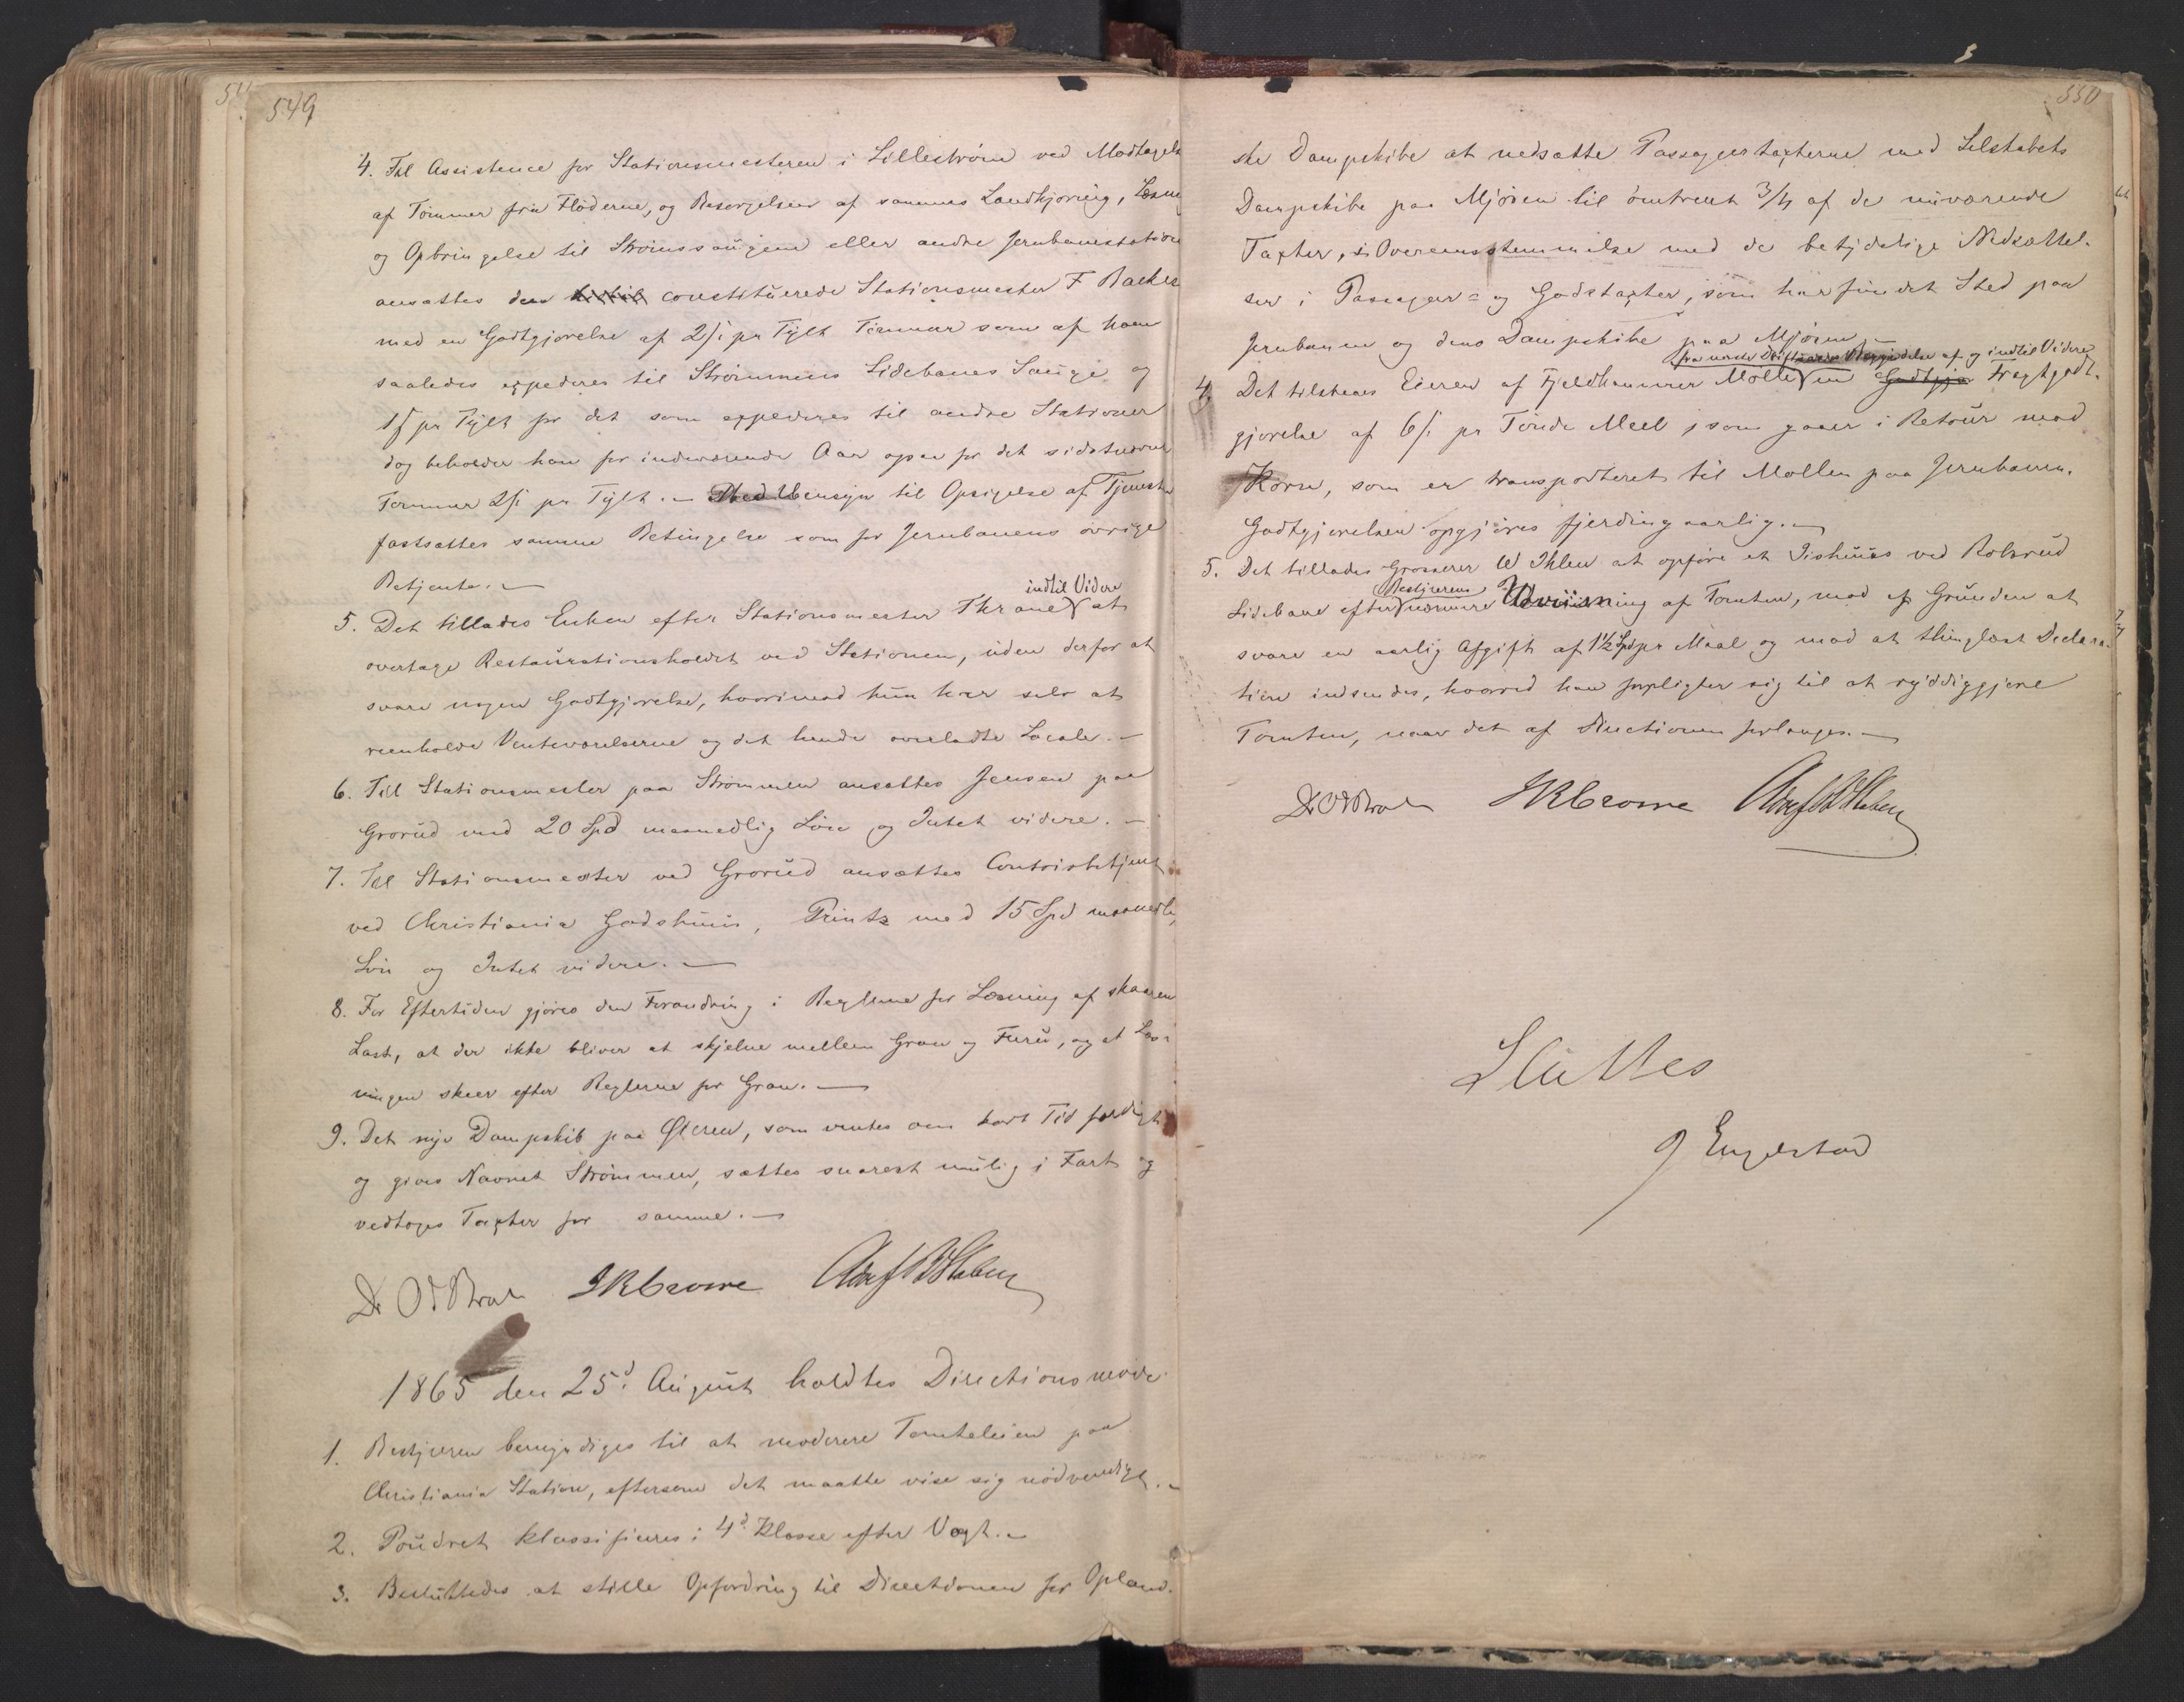 549
4. Til Assistence for Stationsmesteren i Lilleström ved Modtagels
af Tömmer fra Flöderne, og Besörgelsen af sammes Landkjöring, Læsn
og Opbringelse til Strömssaugene eller andre Jernbanestation
ansættes den hidtil constituerede Stationsmester F Backer
med en Godtgjörelse af 2 ſ pr Tylt Tömmer som af ham
saaledes expederes til Strömmens Sidebanes Sauge og
1 ſ pr Tylt for det som expederes til andre Stationer
dog beholder han for indeværende Aar ogsaa for det sidstnævnte
Tömmer 2 ſ pr Tylt. – Med Hensyn til Opsigelse af Tjenesten
fastsættes samme Betingelse som for Jernbanens övrige
Betjente. –
indtil Videre
5. Det tillades Enken efter Stationsmester Thrane at
overtage Restaurationsholdet ved Stationen, uden derfor at
svare nogen Godtgjörelse, hvorimod hun har selv at
reenholde Venteværelserne og det hende overladte Locale. –
6. Til Stationsmester paa Strömmen ansættes Jensen paa
Grorud med 20 Spd maanedlig Lön og Intet videre. –
7. Til Stationsmester ved Grorud ansættes Contoirbetjent
ved Christiania Godshuus, Printz med 15 Spd maanedli
Lön og Intet videre. –
8. For Eftertiden gjöres den Forandring i Reglerne for Læsning af skaaren
Last, at der ikke bliver at skjelne mellem Gran og Furu, og at Læs-
ningen skeer efter Reglerne for Gran. –
9. Det nye Dampskib paa Öieren, som ventes om kort Tid færdigt
og gives Navnet Strömmen, sættes snarest mulig i Fart og
vedtoges Taxter for samme. –
1865 den 25d. August holdtes Directionsmöde
1. Bestyreren bemyndiges til at moderere Tomteleien paa
Christiania Station, eftersom det maatte vise sig nödvendigt. –
2. Poudret klassificeres i 4d. Klasse efter Vægt. –
3. Besluttedes at stille Opfordring til Directionen for Opland-
550
ske Dampskibe at nedsætte Passagertaxterne med Selskabets
Dampskibe paa Mjösen til omtrent 3/4 af de nuværende
Taxter, i Overeensstemmelse med de betydelige Nedsættel-
ser i Passager- og Godstaxter, som har fundet Sted paa
Jernbanen og dens Dampskibe paa Mjösen –
fra næste Driftsaars Begyndelse af og indtil Videre
4. Det tilstaaes Eieren af Fjeldhammer Mölle en Godtgjö Fragtgodt-
gjörelse af 6 ſ pr Tönde Meel, som gaaer i Retour mod
Korn, som er transporteret til Möllen paa Jernbanen.
Godtgjörelsen opgjöres fjerdingaarlig. –
5. Det tillades Grosserer W Ihlen at opföre et Iishuus ved Robsrud
Bestyrerens
Sidebane efter nærmere Udviisning af Tomten, mod af Grunden at
svare en aarlig Afgift af 1½ Spd pr Maal og mod at thinglæst Declara-
tion indsendes, hvorved han forpligter sig til at ryddiggjöre
Tomten, naar det af Directionen forlanges. –
Sluttes
Engelstad